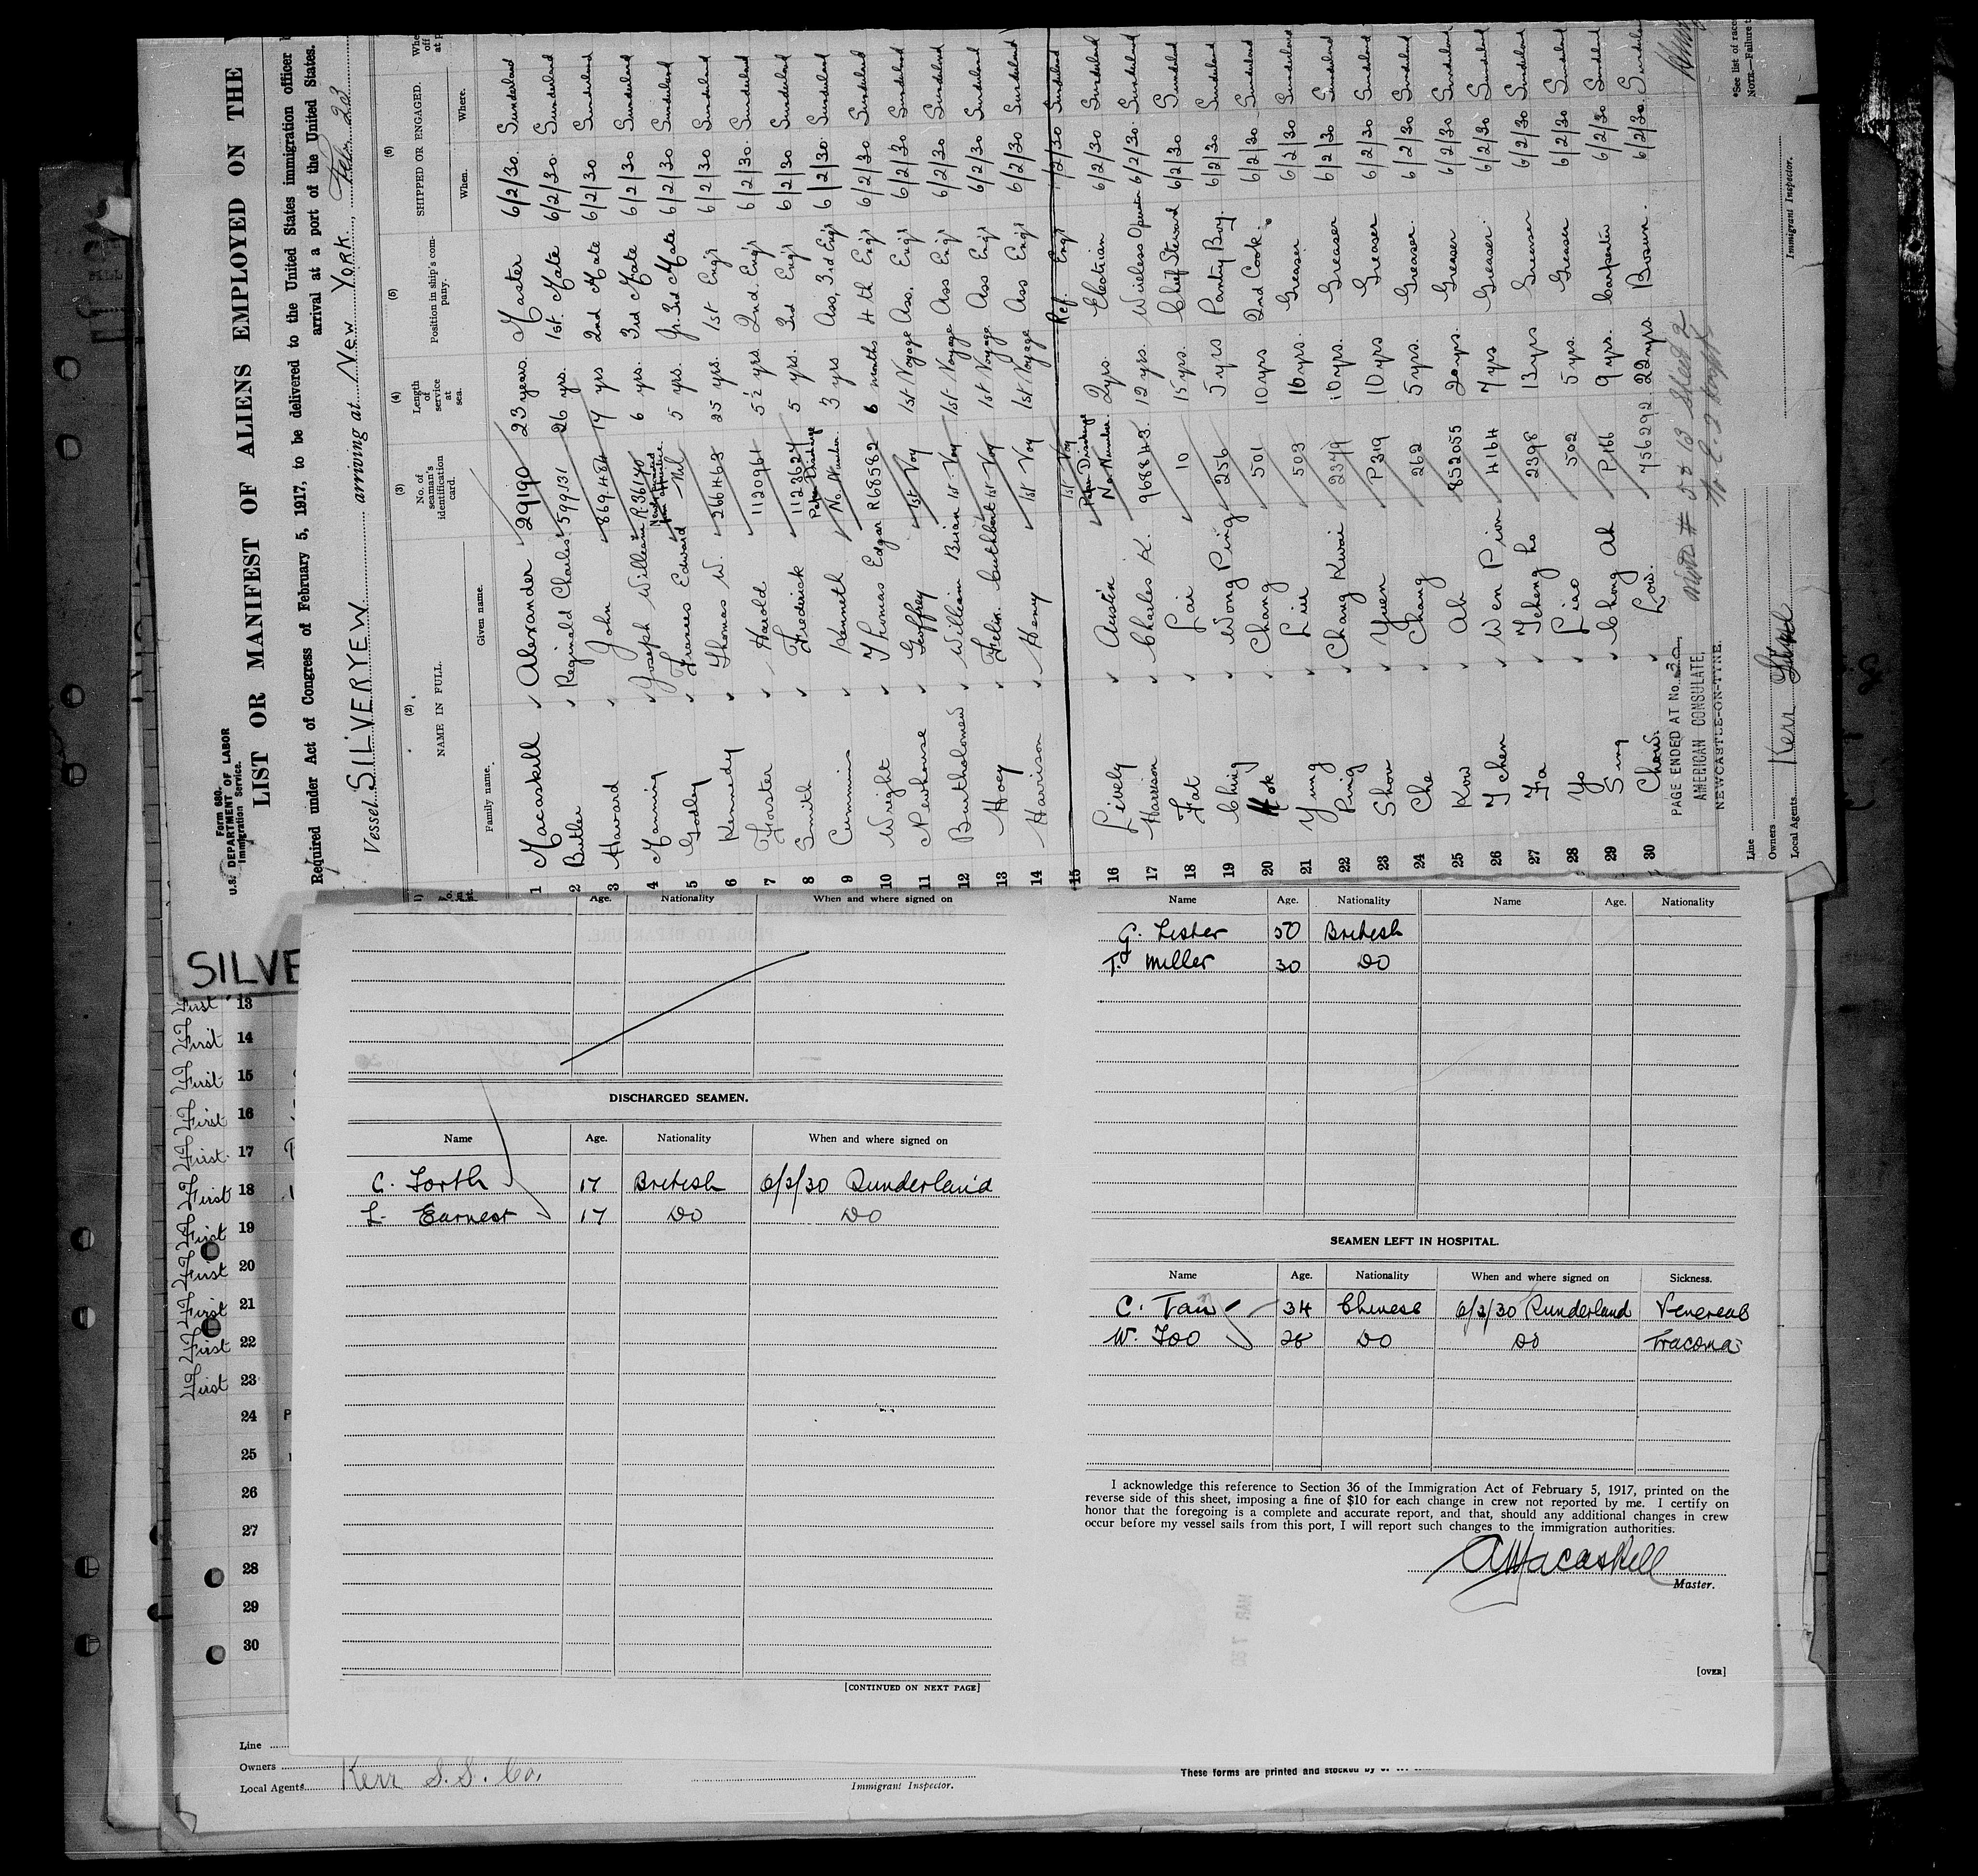 Form 680.
U.S. DEPARTMENT OF LABOR
Immigration Service.
LIST OR MANIFEST OF ALIENS EMPLOYED ON THE
Required under Act of Congress of February 5, 1917, to be delivered to the United States immigration officer
arrival at a port of the United States.
Vessel SILVERYEW arriving at New York, Feb. 23
(2) (3) (4) (5) (6)
NAME IN FULL. No. of seaman's identification card. Length of service at sea. Position in ship's company. SHIPPED OR ENGAGED.
Family name. Given name. When. Where.
1 Macaskill Alexander 29190 23 years. Master 6/2/30. Sunderland
2 Butler Reginald Charles 599131 26 yrs. 1st. Mate 6/2/30. Sunderland
3 Howard John 869484 19 yrs 2nd Mate 6/2/30 Sunderland
4 Manning Joseph William R.36140 6 yrs. 3rd Mate 6/2/30 Sunderland
5 Godley Frances Edward Nil 5 yrs. Jr. 3rd Mate 6/2/30 Sunderland
6 Kennedy Thomas W. 266463 25 yrs. 1st Eng's 6/2/30 Sunderland
7 Forster Harold 1120961 5½ yrs. 2nd. Eng's 6/2/30. Sunderland
8 Smith Frederick 1123624 5 yrs. 3rd Eng's 6/2/30 Sunderland
9 Cummins Kenneth Paper Discharge No. Number. 3 yrs Ass. 3rd Eng's 6/2/30. Sunderland
10 Wright Thomas Edgar R68582 6 months 4th Eng's 6/2/30. Sunderland
11 Newhouse Geoffrey 1st Voy 1st Voyage Ass. Eng's 6/2/30 Sunderland
12 Bartholomew William Brian 1st Voy 1st Voyage Ass Eng's 6/2/30 Sunderland
13 Hoey Felix Cuthbert 1st Voy 1st Voyage Ass Eng's 6/2/30 Sunderland
14 Harrison Henry 1st Voy 1st Voyage Ass Eng's 6/2/30 Sunderland
15 1st Voy Ref. Eng's /2/30 Sunderland
16 Lively Austin Paper Discharge No Number 2yrs. Electrian 6/2/30 Sunderland
17 Harrison Charles K. 968843. 12 yrs. Wireless Operator 6/2/30. Sunderland
18 Fat Lai 10 15 yrs. Chief Steward 6/2/30 Sunderland
19 Ching Wong Ping 256 5 yrs Pantry Boy. 6/2/30 Sunderland
20 Hok Chang 501 10 yrs 2nd Cook. 6/2/30 Sunderland
21 Yung Liu 503 10 yrs. Greaser 6/2/30 Sunderland
22 Ping Chang Kwai 2379 10 yrs. Greaser 6/2/30 Sunderland
23 Shou Yuen P319 10 yrs Greaser 6/2/30 Sunderland
24 Che Chang 262 5 yrs. Greaser. 6/2/30 Sunderland
25 Kow Ah 852055 20 yrs. Greaser 6/2/30 Sunderland
26 Tchen Wen Pion 4164 7 yrs Greaser. 6/2/30 Sunderland
27 Fa Tcheng ho 2398 13 yrs Greaser 6/2/30 Sunderland
28 Yo Liao 502 5 yrs. Greaser 6/2/30 Sunderland
29 Sing Chong Ah P.166 9 yrs. Carpenter 6/2/30 Sunderland
30 Chow. Low. 756292. 22 yrs. Bosun. 6/2/30. Sunderland
PAGE ENDED AT No. 30
AMERICAN CONSULATE,
NEWCASTLE-ON-TYNE.
Line
Owners Kerr Line
Local Agents
Immigrant Inspector.
*See list of races
NOTE.—Failure t
SILVE
First 13
First 14
First 15
First 16
First 17
First 18
First 19
First 20
First 21
First 22
First 23
24
25
26
27
28
29
30
Age. Nationality When and where signed on
DISCHARGED SEAMEN.
Name Age. Nationality When and where signed on
C. Forth 17 British 6/2/30 Sunderland
L. Earnest 17 Do Do
[CONTINUED ON NEXT PAGE]
Name Age. Nationality Name Age. Nationality
G. Lester 50 British
T. Miller 30 Do
SEAMEN LEFT IN HOSPITAL.
Name Age. Nationality When and where signed on Sickness.
C. Tan 34 Chinese 6/2/30 Sunderland Venereal
W. Foo 28 Do Do Tracoma
I acknowledge this reference to Section 36 of the Immigration Act of February 5, 1917, printed on the
reverse side of this sheet, imposing a fine of $10 for each change in crew not reported by me. I certify on
honor that the foregoing is a complete and accurate report, and that, should any additional changes in crew
occur before my vessel sails from this port, I will report such changes to the immigration authorities.
A Macaskill
Master.
[OVER]
Line
Owners
Local Agents Kerr S.S. Co.
Immigrant Inspector.
These forms are printed and stocked by